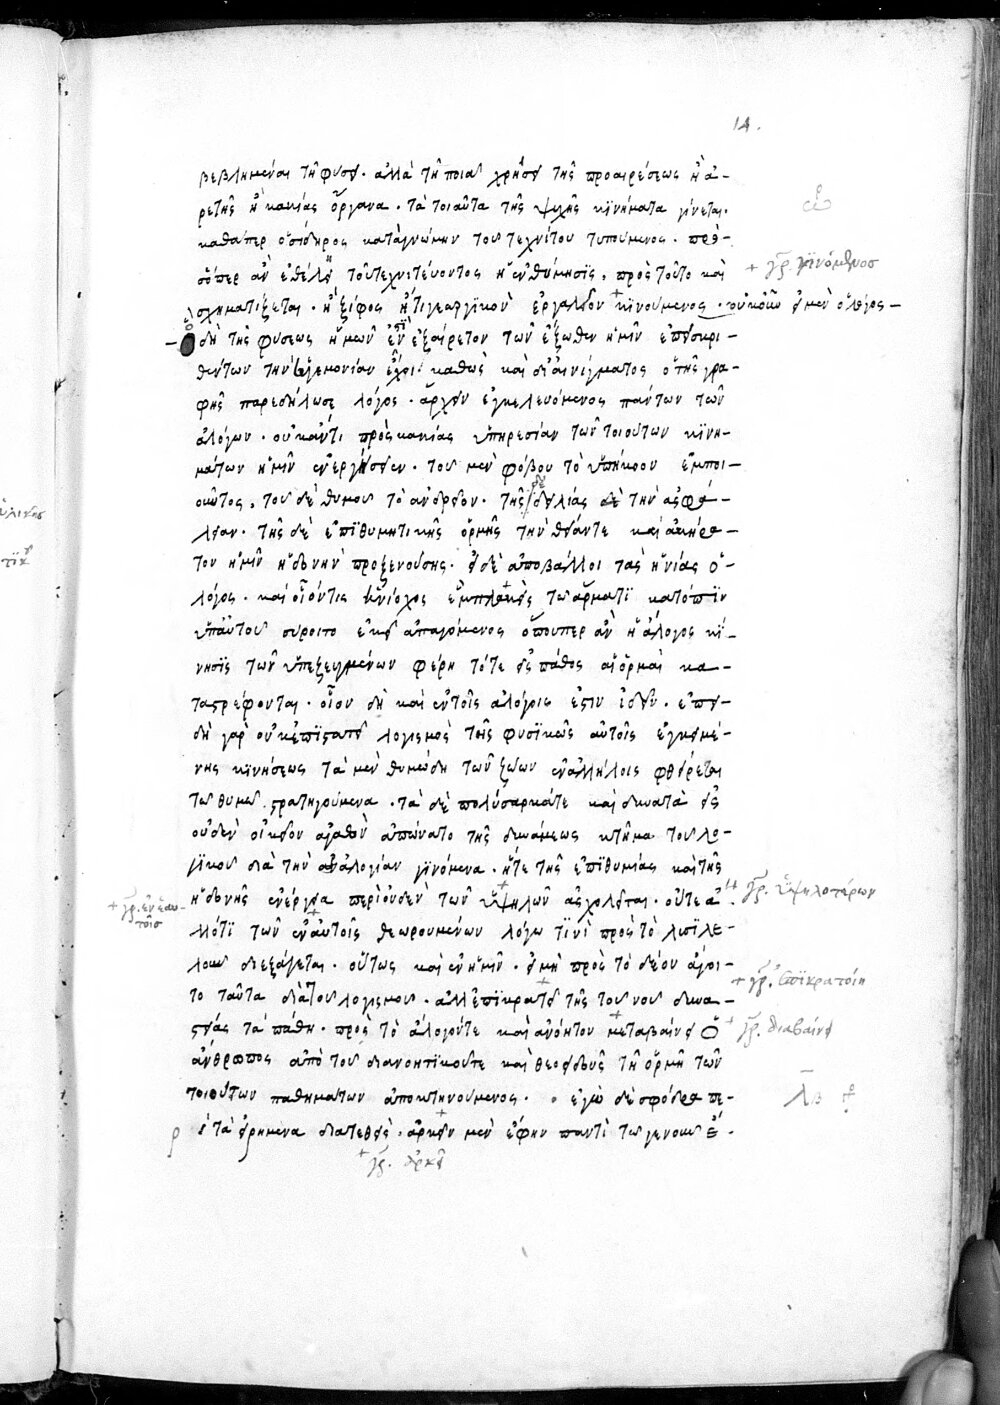 14.
βεβλημέναι τῆ φύσει· ἀλλὰ τῆ ποιᾶ χρήσει τῆς προαιρέσεως ἢ ἀ-
ρετῆς ἢ κακίας ὄργανα· τὰ τοιαῦτα τῆς ψυχῆς κινήματα γίνεται·
καθάπερ ὁ σίδηρος κατὰ γνώμην τοῦ τεχνίτου τυπούμενος· πρὸς
ὅπερ ἂν ἐθέλῃ τοῦ τεχνιτεύοντος ἡ ἐνθύμησις, πρὸς τοῦτο καὶ
+ γρ. γινόμενος
σχηματίζεται· ἢ ξίφος ἤ τι γεωργικὸν ἐργαλεῖον κινούμενος· οὐκοῦν εἰ μὲν ὁ λόγος
ὁ δὴ τῆς φύσεως ἡμῶν ἐστὶν ἐξαίρετον τῶν ἔξωθεν ἡμῖν ἐπεισκρι-
θέντων τὴν ἡγεμονίαν ἔχοι καθὼς καὶ δι' αἰνίγματος ὁ τῆς γρα-
φῆς παρεδήλωσε λόγος· ἄρχειν ἐγκελευόμενος πάντων τῶν
ἀλόγων· οὐκ ἄν τι πρὸς κακίας ὑπηρεσίαν τῶν τοιούτων κινη-
μάτων ἡμῖν ἐνεργήσειεν· τοῦ μὲν φόβου τὸ ὑπήκοον ἐμποι-
οῦντος, τοῦ δὲ θυμοῦ τὸ ἀνδρεῖον· τῆς δειλίας δὲ τὴν ἀσφά-
λειαν· τῆς δὲ ἐπιθυμητικῆς ὁρμῆς τὴν θείαν τε καὶ ἀκήρα-
τον ἡμῖν ἡδονὴν προξενούσης· εἰ δὲ ἀποβάλλοι τὰς ἡνίας ὁ
λόγος· καὶ οἷόν τις ἡνίοχος ἐμπλακεὶς τῶ ἅρματι κατόπιν
ὑπ' αὐτοῦ σύροιτο ἐκεῖ ἀπαγόμενος ὅπουπερ ἂν ἡ ἄλογος κί-
νησις τῶν ὑπεζευγμένων φέρη τότε εἰς πάθος αἱ ὁρμαὶ κα-
ταστρέφονται· οἷον δὴ καὶ ἐν τοῖς ἀλόγοις ἔστιν ἰδεῖν· ἐπει-
δὴ γὰρ οὐκ ἐπιστατεῖ λογισμὸς τῆς φυσικῶς αὐτοῖς ἐγκειμέ-
νης κινήσεως τὰ μὲν θυμώδη τῶν ζώων ἐν ἀλλήλοις φθείρεται
τῶ θυμῶ στρατηγούμενα· τὰ δὲ πολύσαρκά τε καὶ δυνατὰ εἰς
οὐδὲν οἰκεῖον ἀγαθὸν ἀπώνατο τῆς δυνάμεως κτῆμα τοῦ λο-
γικοῦ διὰ τὴν ἀναλογίαν γινόμενα· ἥτε τῆς ἐπιθυμίας καὶ τῆς
ἡδονῆς ἐνέργεια περὶ οὐδὲν τῶν ὑψηλῶν ἀσχολεῖται· οὔτε ἄ-
+ γρ. ὑψηλοτέρων
+ γρ. ἐν ἑαυ-
τοῖς
λλό τι τῶν ἐν αὐτοῖς θεωρουμένων λόγω τινὶ πρὸς τὸ λυσιτε-
λοῦν διεξάγεται· οὕτως καὶ ἐν ἡμῖν· εἰ μὴ πρὸς τὸ δέον ἄγοι-
το ταῦτα διὰ τοῦ λογισμοῦ· ἀλλ' ἐπικρατεῖ τῆς τοῦ νοῦ δυνα-
+ γρ. ἐπικρατοίη
στείας τὰ πάθη· πρὸς τὸ ἄλογόν τε καὶ ἀνόητον μεταβαίνει ὁ
+ γρ. διαβαίνει
ἄνθρωπος ἀπὸ τοῦ διανοητικοῦ τε καὶ θεοειδοῦς τῆ ὁρμῆ τῶν
τοιούτων παθημάτων ἀποκτηνούμενος· ἐγὼ δὲ σφόδρα πε-
ρὶ τὰ εἰρημένα διατεθείς· ἀρκεῖν μὲν ἔφην παντὶ τῶ γε νοῦν ἔ-
+ γρ. ἀρκεῖ